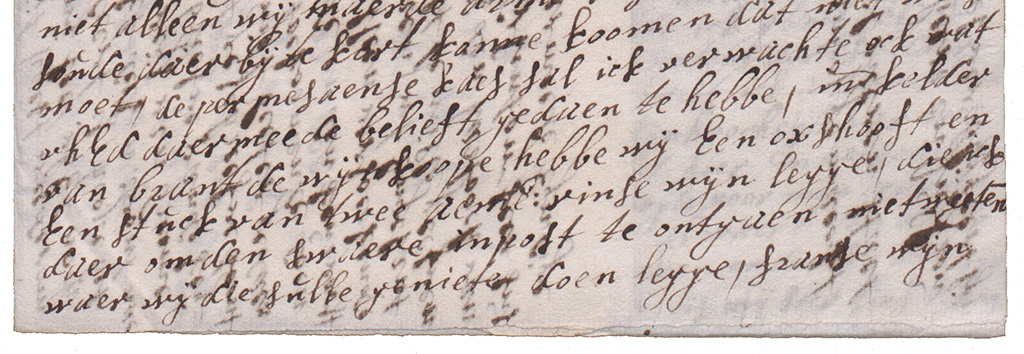 niet alleen wij
soude daer bij te kort kanne koomen dat niet
moet, de permesaense kaes sal ick verwachte ock wat
vhEd daer meede belieft gedaen te hebbe, in kelder
van brant de wijtkoope hebbe wij Een oxshooft en
Een stuck van twee aeme rinse wijn legge, die ick
daer om den swaere inpost te ontgaen niet weeten
waer wij die sulle geniete doen legge, franse wijn